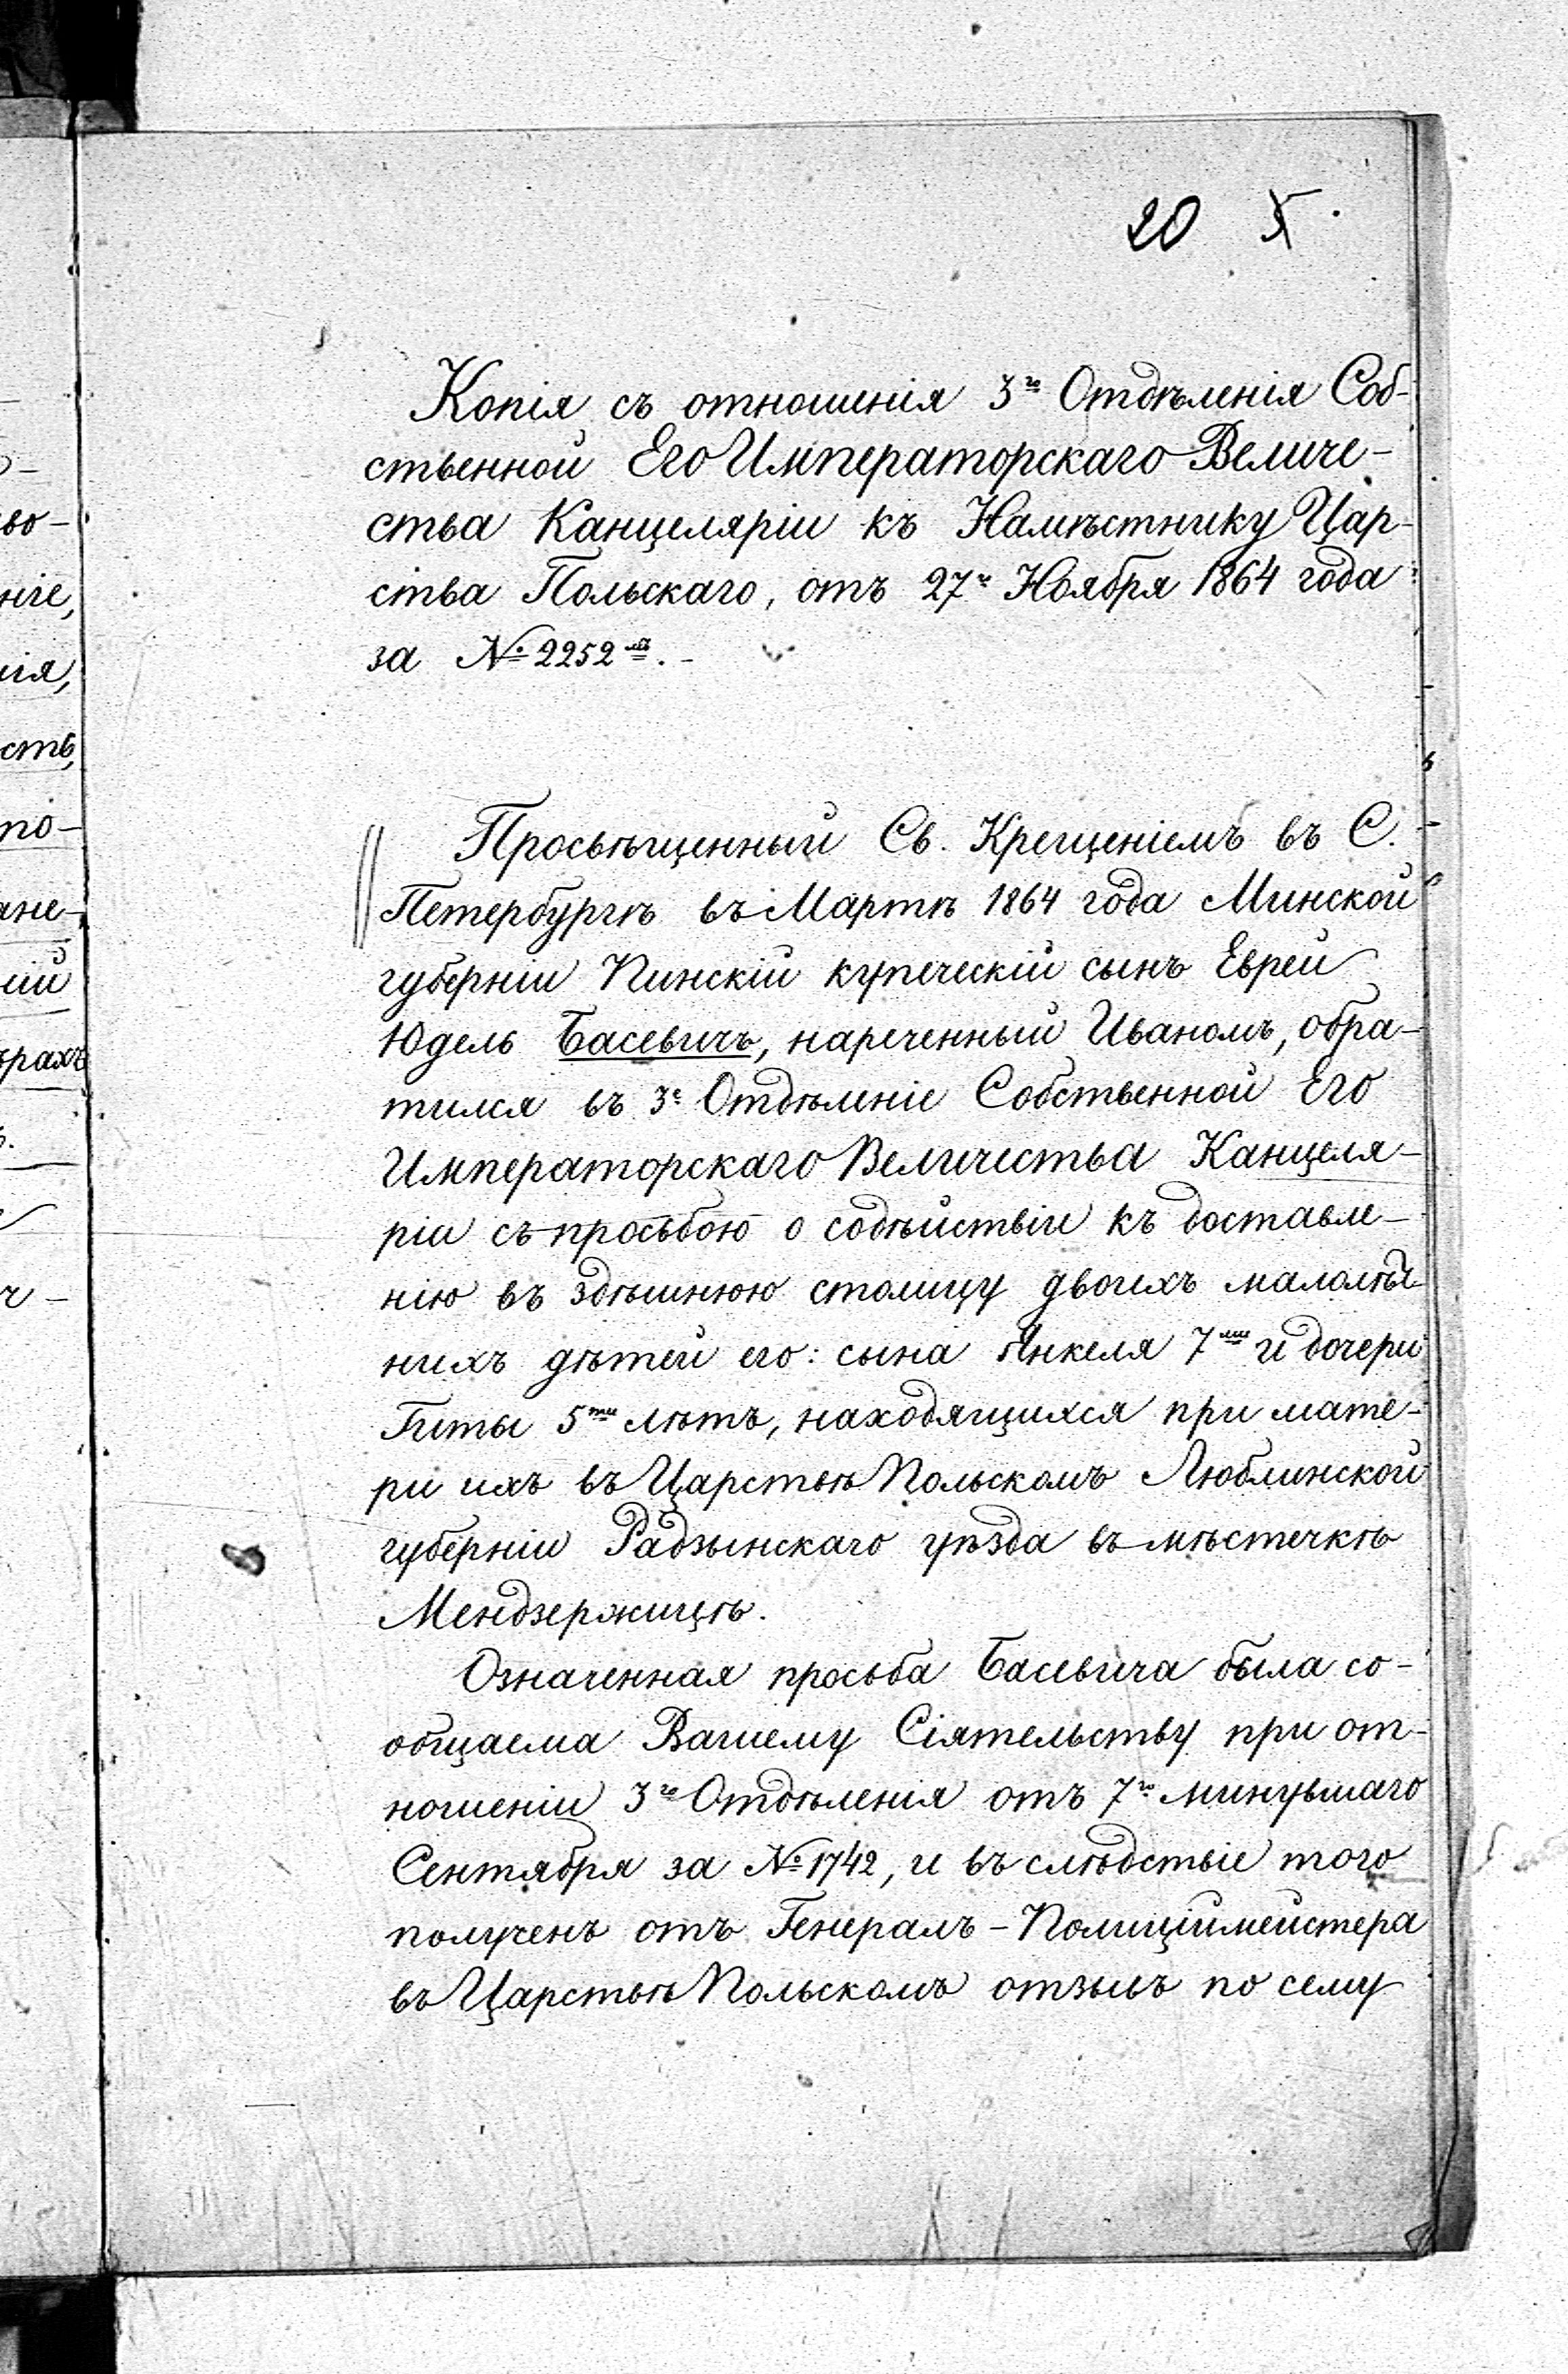 20 5.
Копія съ отношенія 3го Отдѣленія Соб-
ственной Его Императорскаго Величе-
ства Канцеляріи къ Намѣстнику Цар-
ства Польскаго, отъ 27го Ноября 1864 года
за № 2252мъ. -
Просвѣщенный Св. Крещеніемъ въ С.
Петербургѣ въ Мартѣ 1864 года Минской
губерніи Пинскій купеческій сынъ Еврей
Юдель Басевичъ, нареченный Иваномъ, обра-
тился въ 3е Отдѣленіе Собственной Его
Императорскаго Величества Канцеля-
ріи съ просьбою о содѣйствіи къ доставле-
нію въ здѣшнюю столицу двоихъ малолѣт-
нихъ дѣтей его: сына Янкеля 7ми и дочери
Гиты 5ти лѣтъ, находящихся при мате-
ри ихъ въ Царствѣ Польскомъ Люблинской
губерніи Радзынскаго уѣзда въ мѣстечкѣ
Мендзержицѣ.
Означенная просьба Басевича была со-
общаема Вашему Сіятельству при от-
ношеніи 3го Отдѣленія отъ 7го минувшаго
Сентября за № 1742, и въ слѣдствіе того
полученъ отъ Генералъ-Полиціймейстера
въ Царствѣ Польскомъ отзывъ по сему
во-
ніе,
ія,
сть,
по-
ане-
ній
рахъ